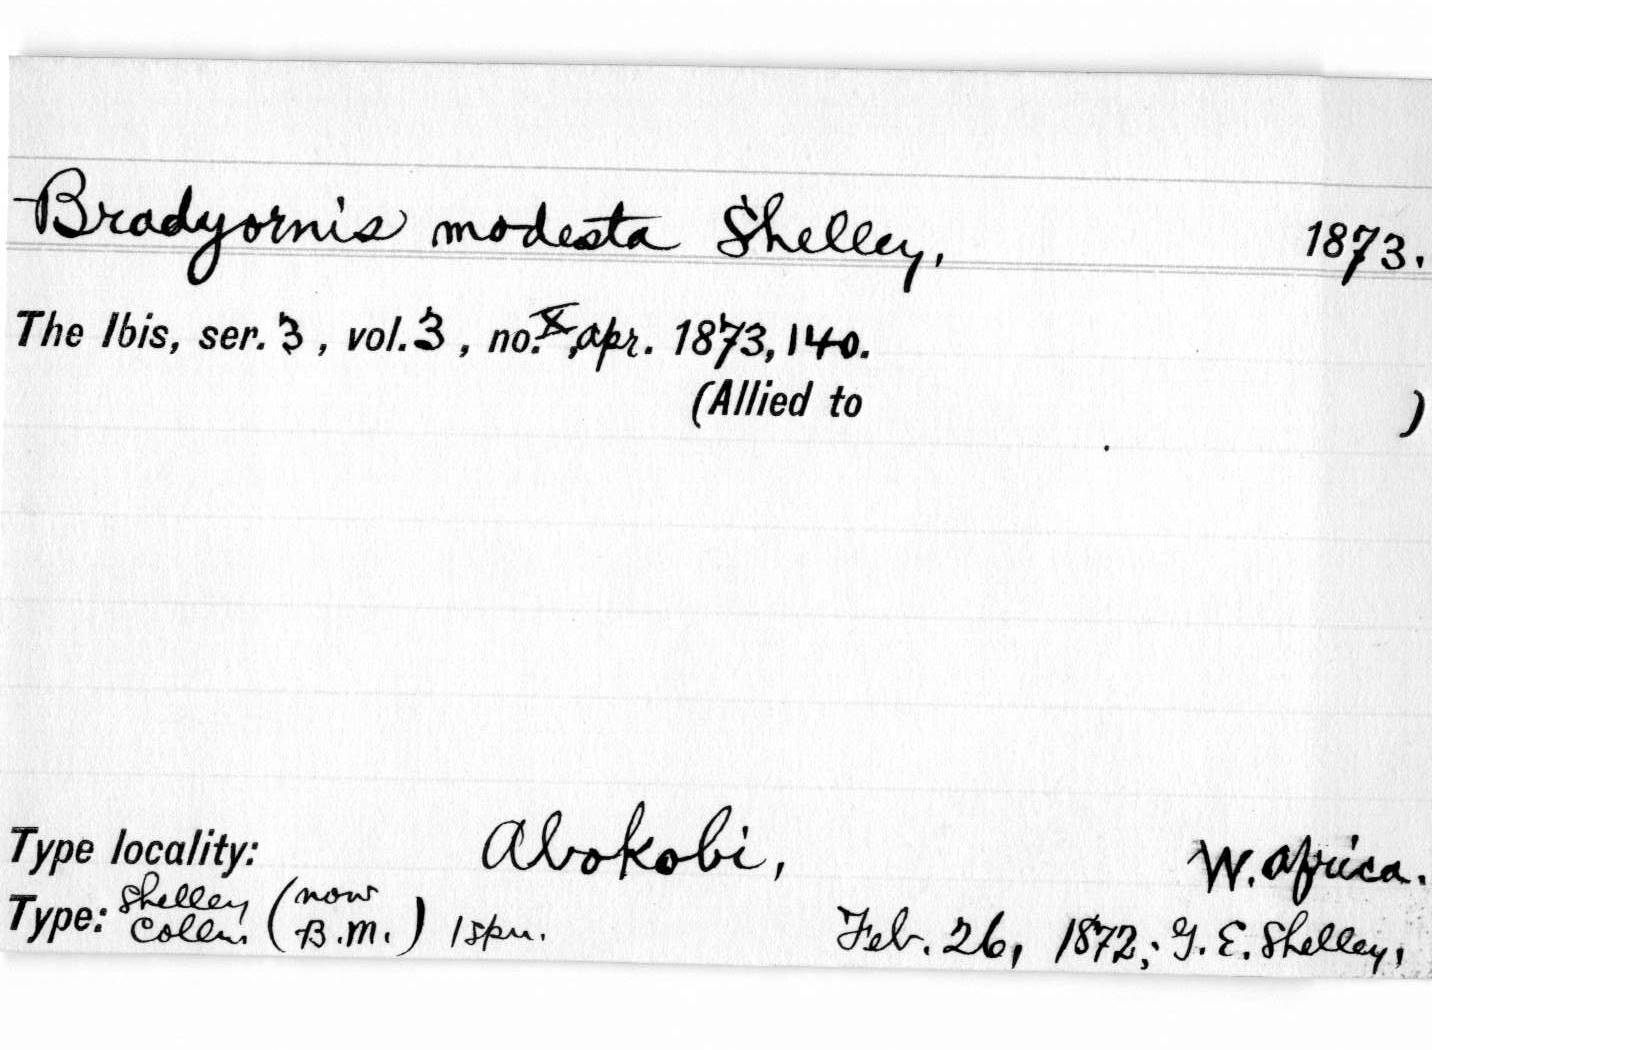 Bradyornis modesta Shelley, 1873.
The Ibis, ser. 3, vol. 3, no. X, apr. 1873, 140.
(Allied to )
Type locality: Abokobi, W. Africa.
Type: Shelley Colln. (now B.M.) 1 spn. Feb. 26, 1872; G. E. Shelley,